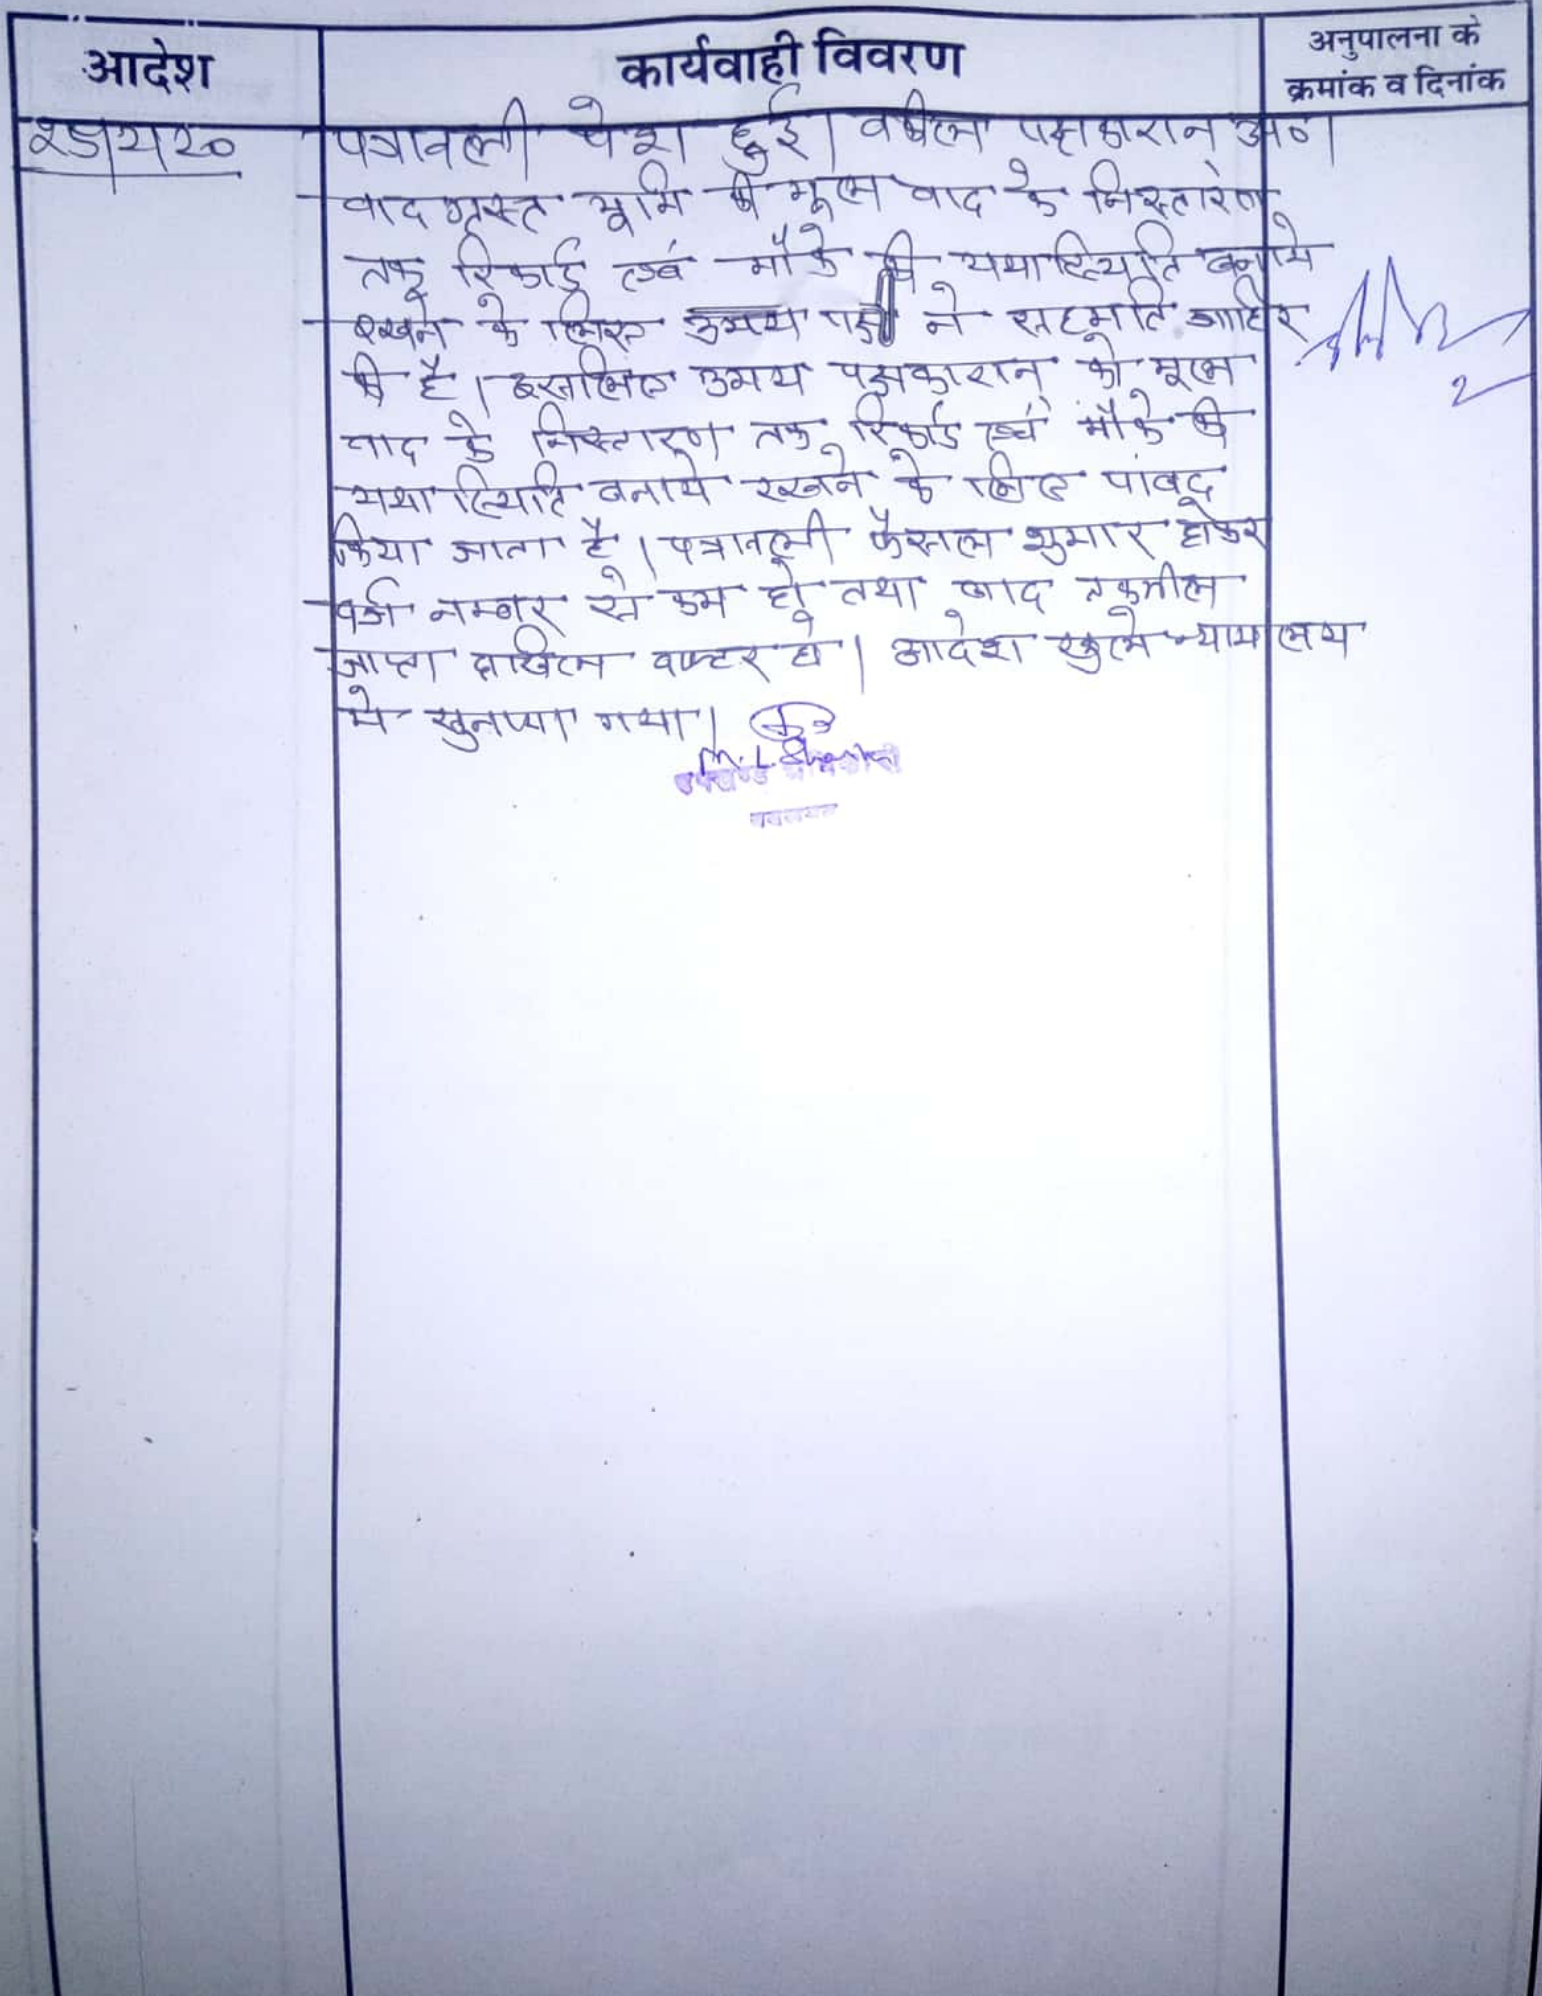 आदेश
कार्यवाही विवरण
अनुपालना के
क्रमांक व दिनांक
पत्रावली पेश हुई। वकील पक्षकारान उप०।
वादग्रस्त भूमि की मूल वाद के निस्तारण
तक रिकार्ड एवं मौके की यथास्थिति बनाये
रखने के लिए उभय पक्षों ने सहमति जाहिर
की है। इसलिए उभय पक्षकारान् को मूल
वाद के निस्तारण तक रिकार्ड एवं मौके की
यथास्थिति बनाये रखने के लिए पांबद
किया जाता है। पत्रावली फैसल शुमार होकर
दर्ज नम्बर से कम हो तथा बाद तकमील
जाप्ता दाखिल दफ्तर हो। आदेश खुले न्यायालय
मे सुनाया गया।